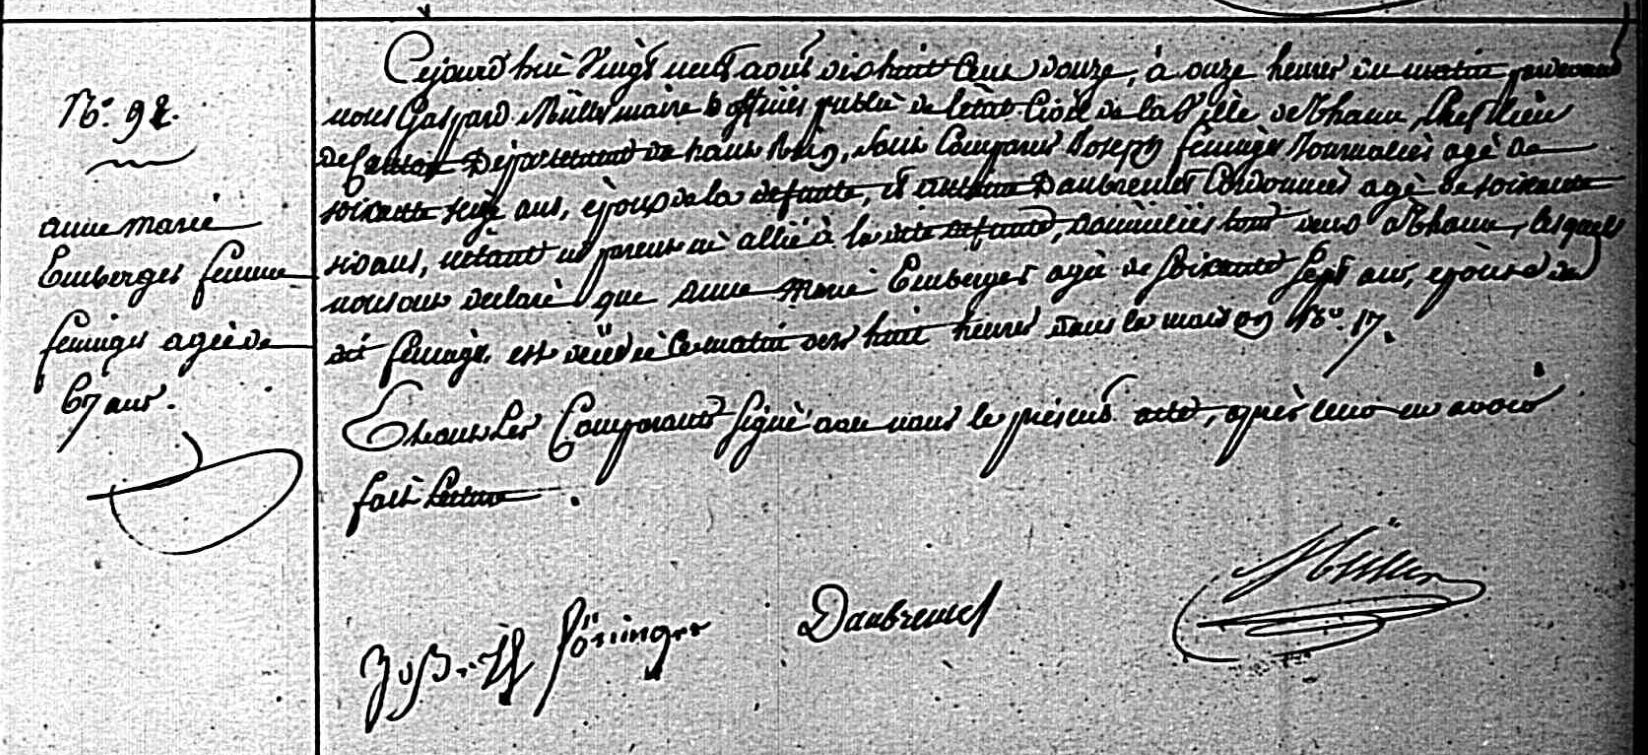 No. 92.
anne marie
Emberger femme
feninger agée de
67 ans.
Cejourd'hui Vingt neuf aout dix huit Cent douze, à onze heures du matin pardevant
nous Gaspard Müller maire & officier public de l'état Civil de la Ville de Thann, Chef lieu
de Canton Département du haut Rhin, sont Comparus Joseph feninger Journalier agé de
soixante seize ans, époux de la defunte, et Daubremet Cordonnier agé de soixante
six ans, n'étant ni parent ni allié à la dite defunte, domiciliés tout deux à Thann, lesquels
nous ont declaré que Anne Marie Emberger agée de soixante sept ans, epouse du
dit feninger est decedée ce matin vers huit heures dans la maison No. 17.
Et ont les Comparants signé avec nous le présent acte, après leur en avoir
fait lecture.
föninger Daubremet Müller